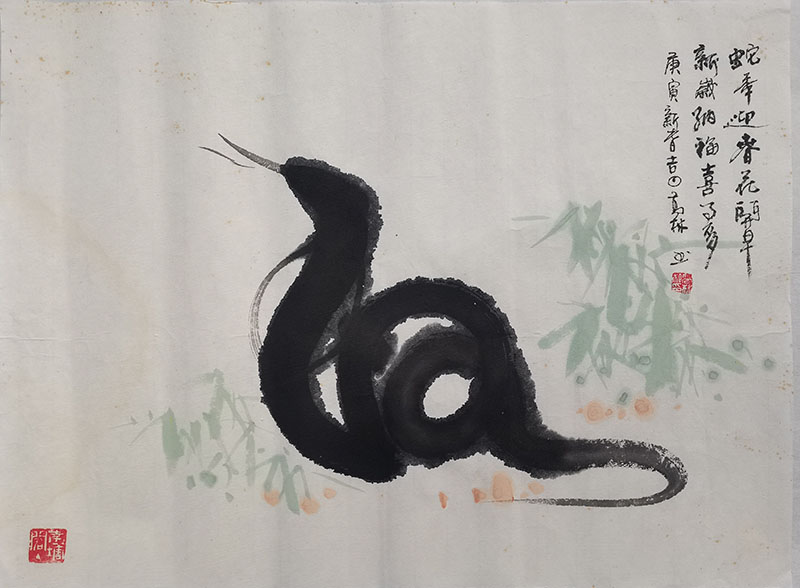 蛇年迎春花開早
新歲納福喜事多
庚寅新春吉日高林画